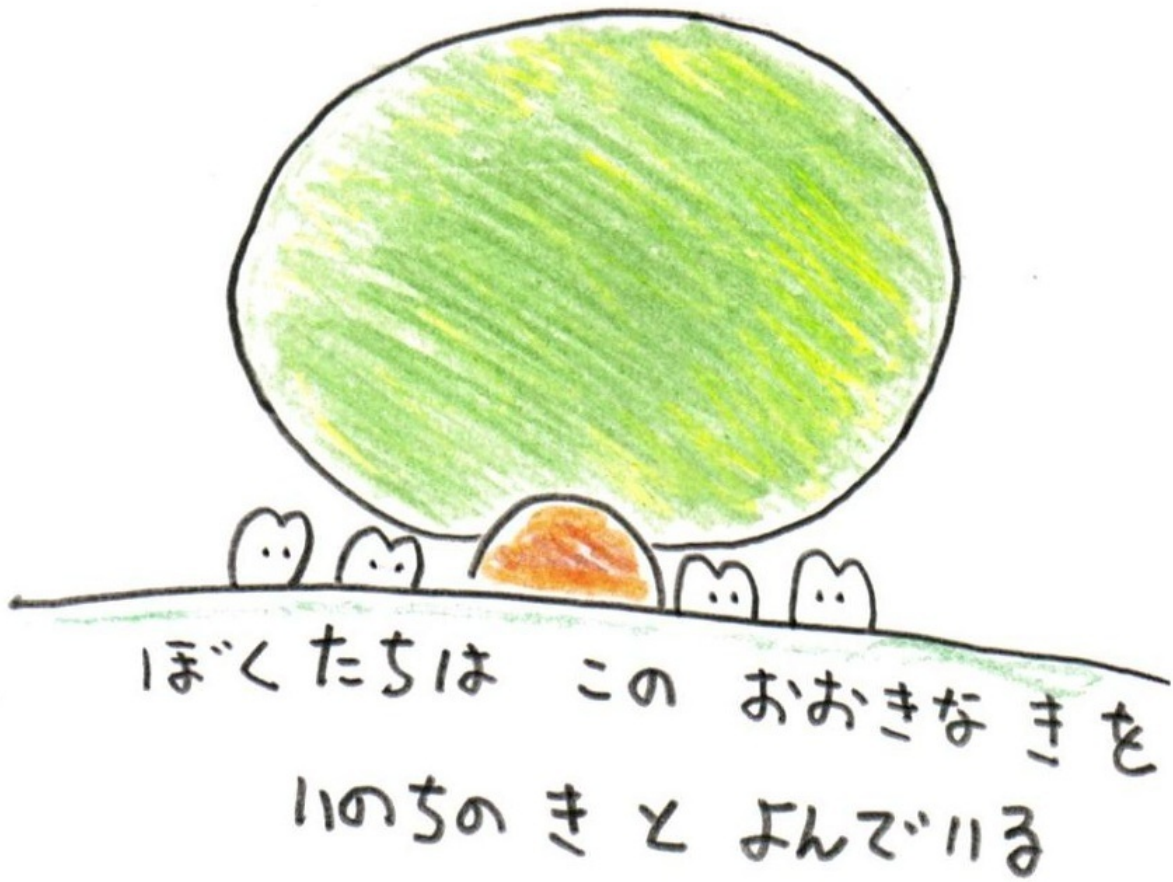 ぼくたちは この おおきな きを
いのちの き と よんでいる